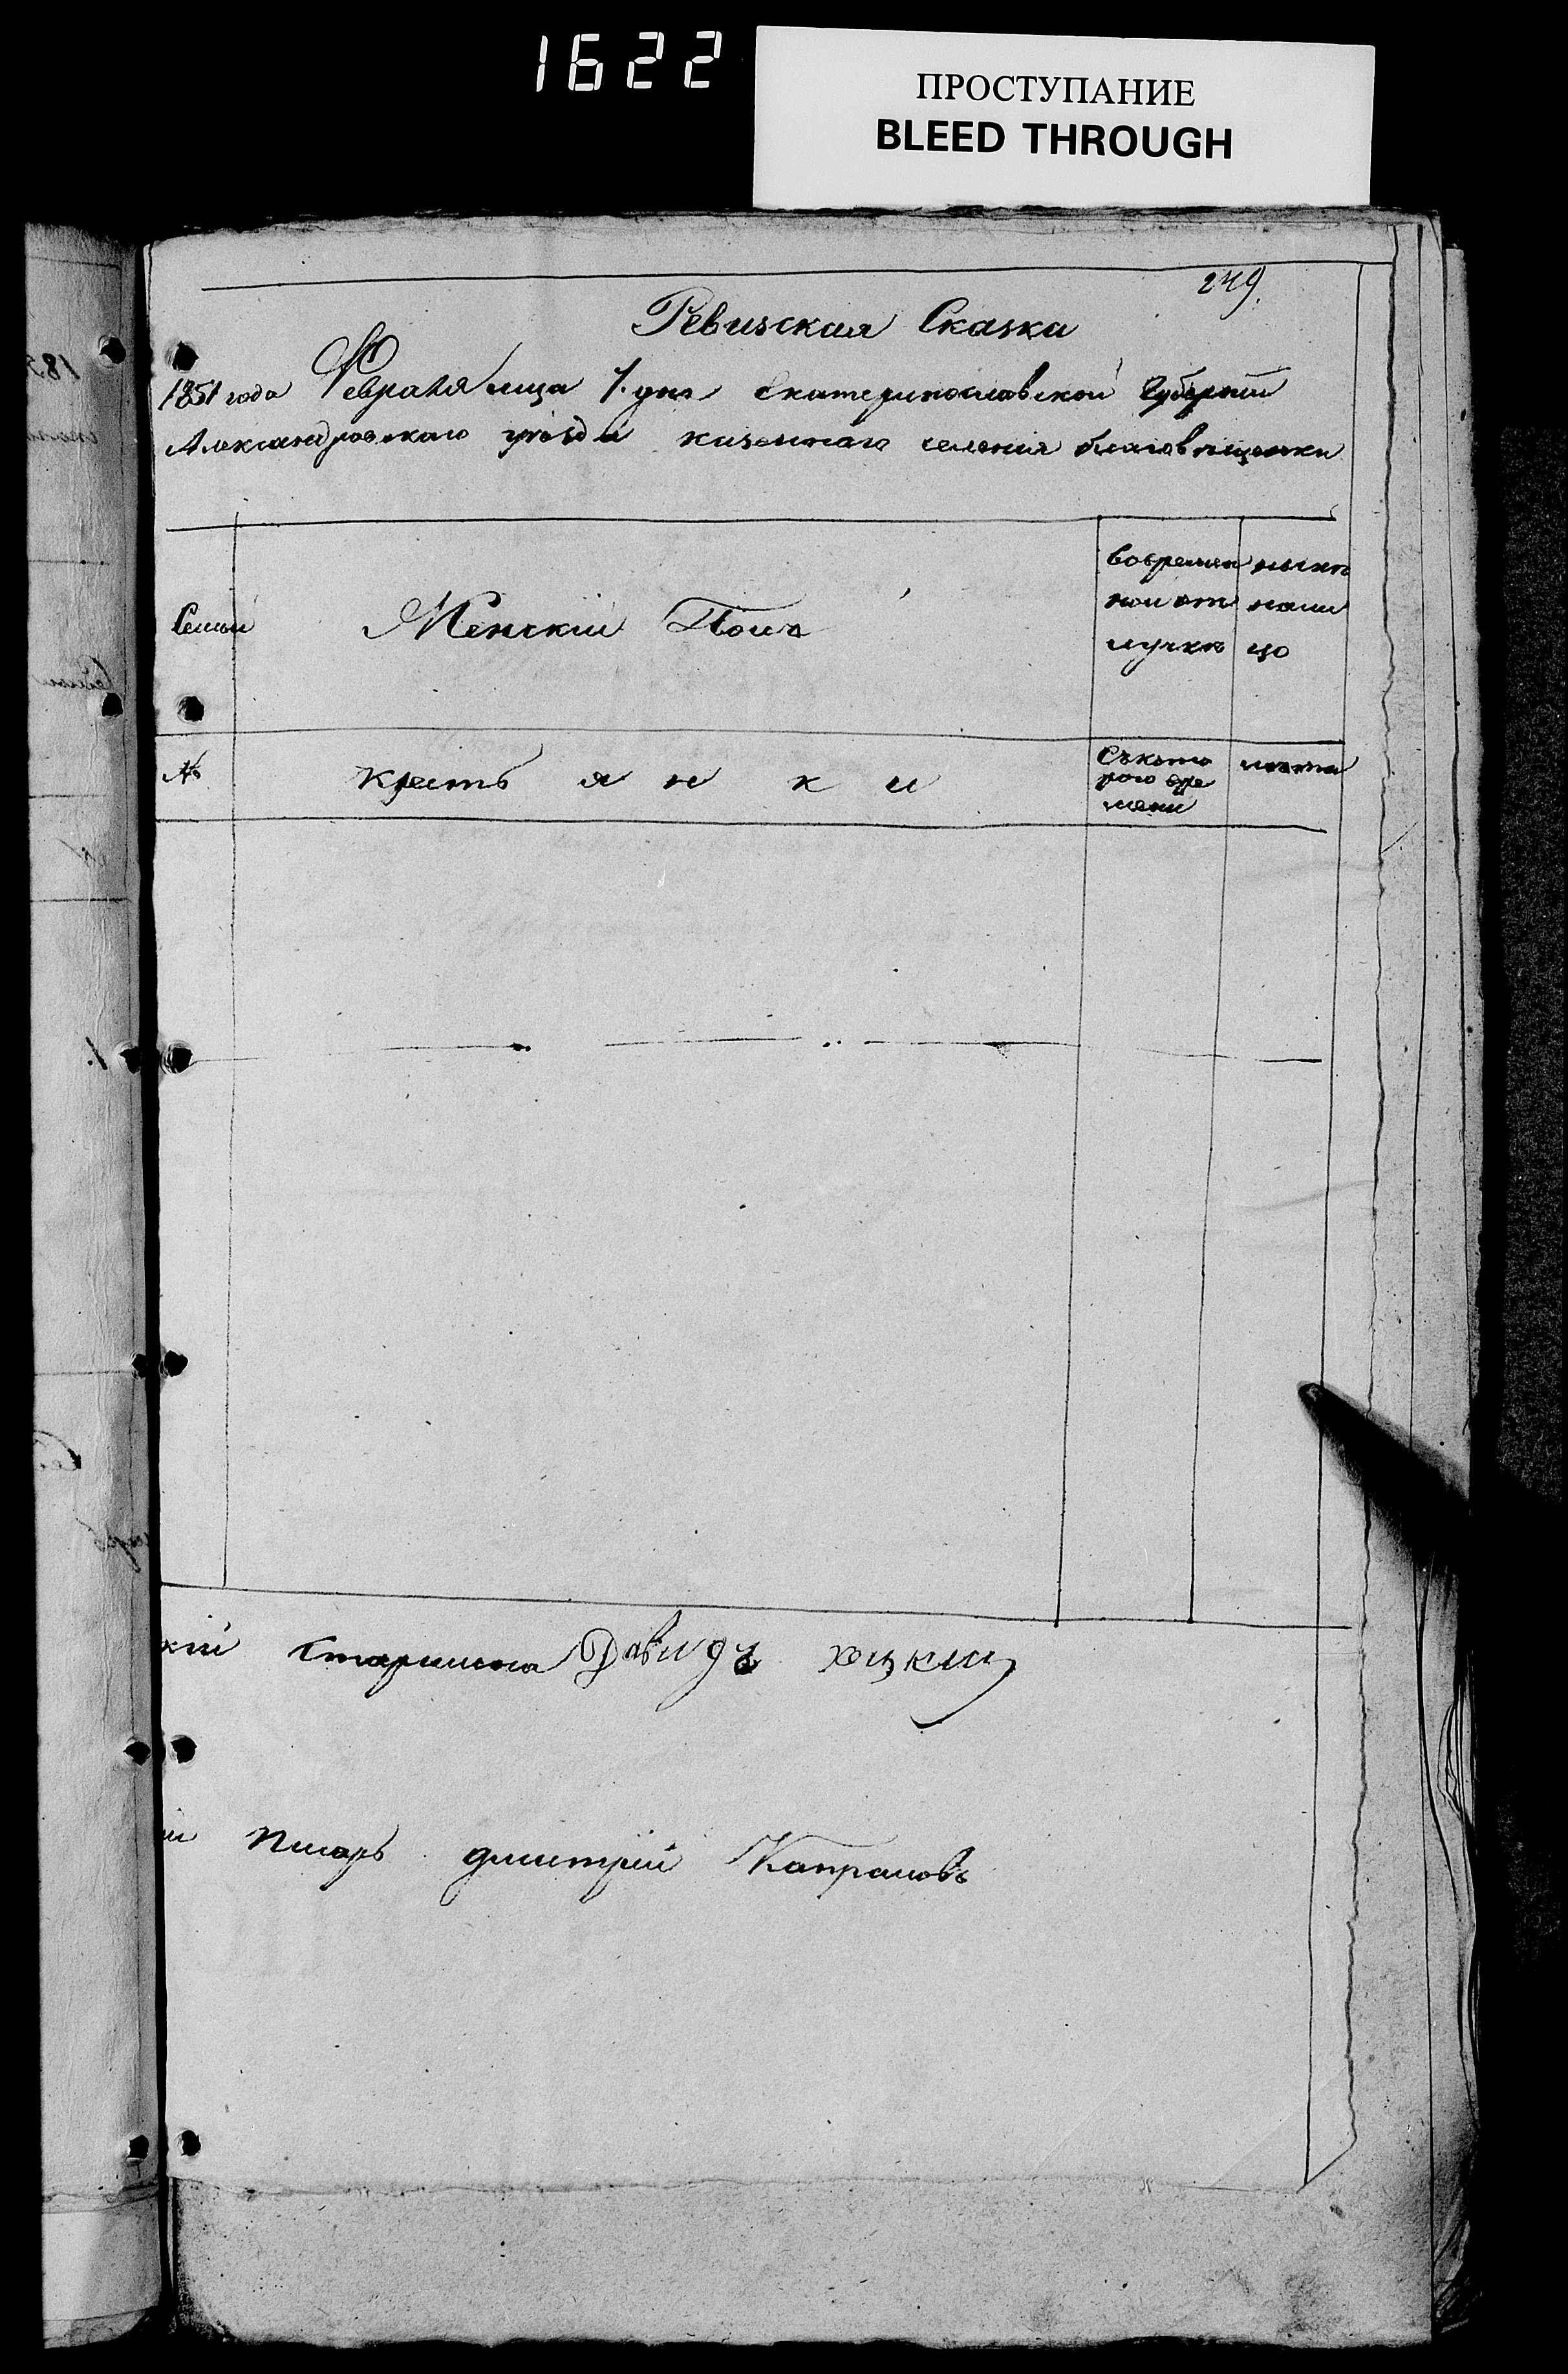 1622
ПРОСТУПАНИЕ
BLEED THROUGH
249.
Ревизская Сказка
1851 года Февраля мца 1. дня Екатеринославской Губернии
Александровского уѣзда казеннаго селения благовѣщенки
Семьи
Женскій Полъ
вовремен
ной от
лучкѣ
нынѣ
нали
цо
№
крестьянки
Съкото
рого вре
мени
лѣта
кій Старшина Давидъ
ій Писарь дмитрій Капрановъ